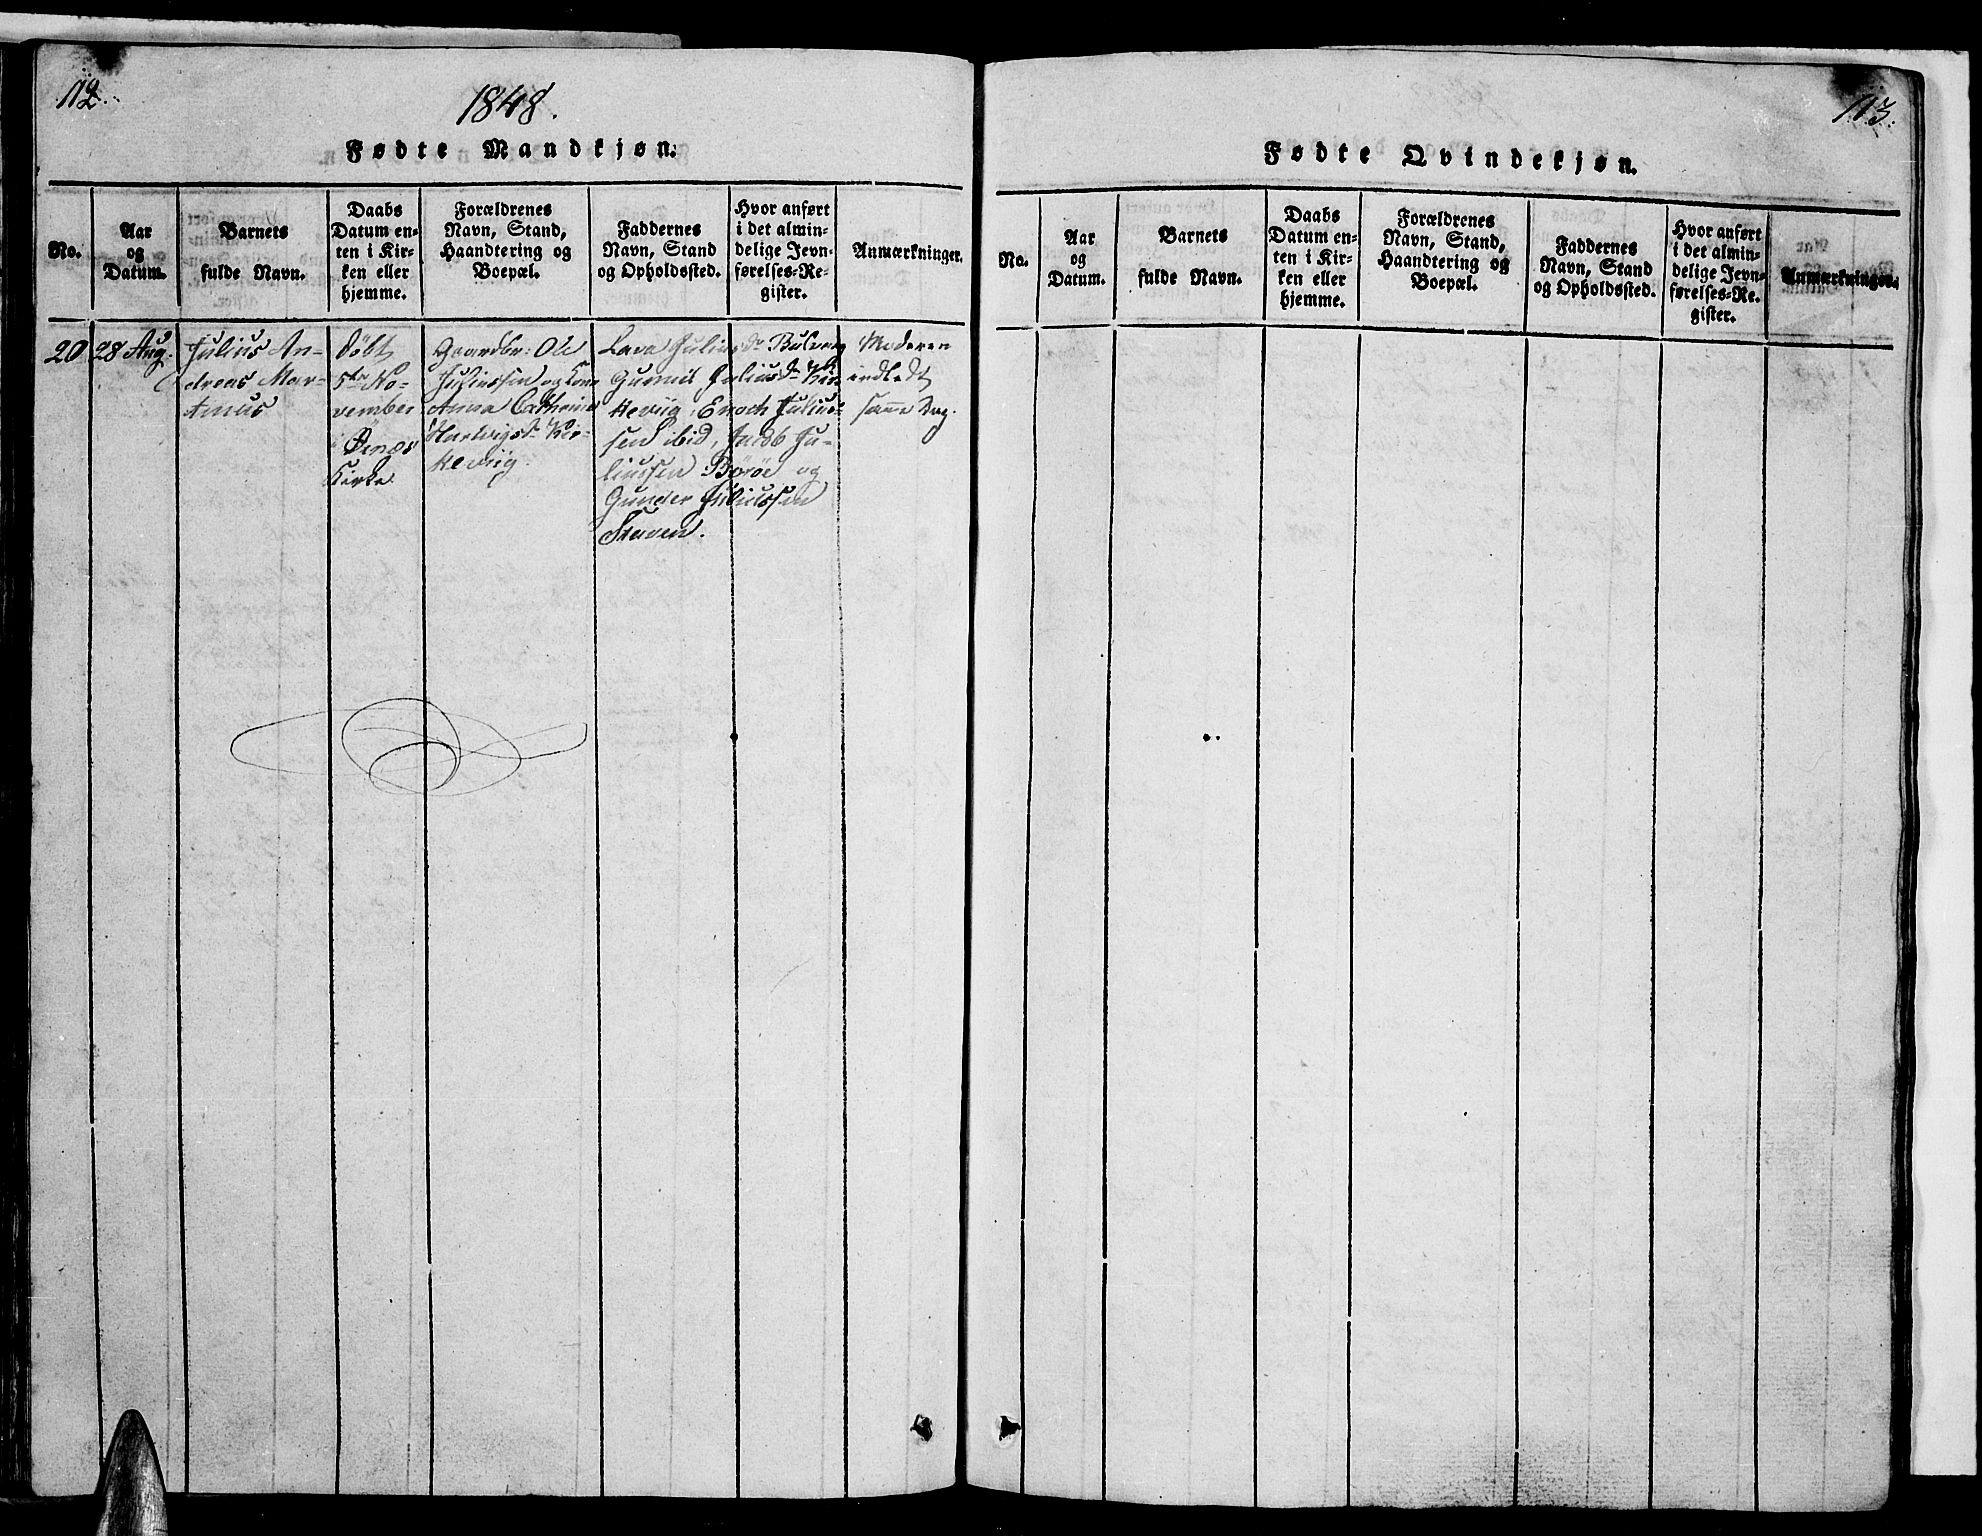 112.
1848.
Fødte Mandkjøn.
No.
Aar
og
Datum.
Barnets
fulde Navn.
Daabs
Datum en-
ten i Kir-
ken eller
hjemme.
Forældrenes
Navn, Stand,
Haandtering og
Boepæl.
Faddernes
Navn, Stand
og Opholdssted.
Hvor anført
i det almin-
delige Jevn-
førelses-Re-
gister.
Anmærkninger.
20
28 Aug.
Julius An-
dreas Mar-
tinus
döbt
5te No-
vember
i Önæs
Kirke
Gaardbr: Ole
Juliussen og Kone
Anna Cathrina
Hartvigsd. Kir-
keviig.
Lava Juliusd.
Gunnil Juliusd. Kir-
keviig, Enoch Julius-
sen ibid, Jacob Ju-
liussen Börøe og
Gunder Juliussen
Staven.
Moderen
indledt
samme Dag.
113.
Fødte Qvindekjøn.
No.
Aar
og
Datum.
Barnets
fulde Navn.
Daabs
Datum en-
ten i Kir-
ken eller
hjemme.
Forældrenes
Navn, Stand,
Haandtering og
Boepæl.
Faddernes
Navn, Stand
og Opholdssted.
Hvor anført
i det almin-
delige Jevn-
førelses-Re-
gister.
Anmærkninger.